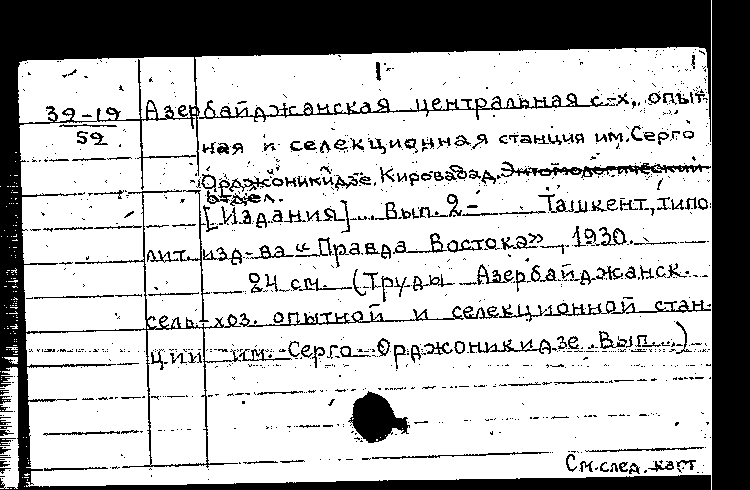 1
32-19
59
Азербайджанская центральная с-х. опыт
ная и селекционная станция им. Серго
Орджоникидзе. Кировабад. Энтомологический
отдел.
[Издания]... Вып. 2- Ташкент, типо
лит. изд-ва "Правда Востока", 1930.
24 см. (Труды Азербайджанск.
сель-хоз. опытной и селекционной стан-
ции им. Серго Орджоникидзе. Вып...)
См. след. карт